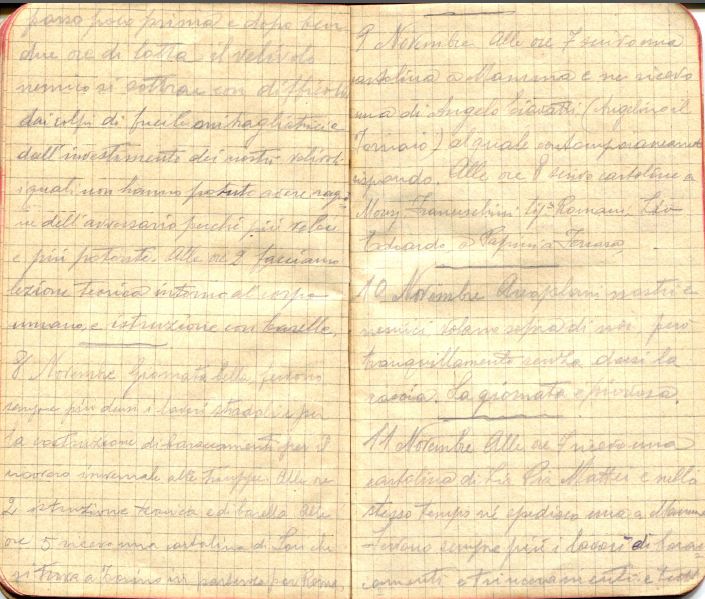 passo poco prima e dopo ben
due ore di lotta il velivolo
nemico si sottrae con difficoltà
dai colpi di fucile mitragliatrici e
dall'investimento dei nostri velivoli
i quali non hanno potuto avere ragio=
ne dell'avversario perchè più veloce
e più potente. Alle ore 2 facciamo
lezione teorica intorno al corpo
umano, e istruzione con barelle.
8 Novembre Giornata bella, fervono
sempre più densi i lavori stradali e per
la costruzione di baraccamenti per il
ricovero invernale alle truppe. Alle ore
2 istruzione teorica e di barella. Alle
ore 5 ricevo una cartolina di che
si trova a Torino in partenza per Roma.
9 Novembre Alle ore 7 scrivo una
cartolina a Mamma e ne ricevo
una di Angelo (Angelino il
Fornaio) al quale contemporaneamente
rispondo. Alle ore 8 scrivo cartoline a
Franceschini, Romani,
Edoardo, e
10 Novembre Aeroplani nostri e
nemici volano sopra di noi, però
tranquillamente senza darsi la
caccia. La giornata è piovosa.
11 Novembre Alle ore 7 ricevo una
cartolina di Pia Mattei e nello
stesso tempo ne spedisco una a Mamma
Fervono sempre più i lavori di barac=
camenti e trinceramenti e